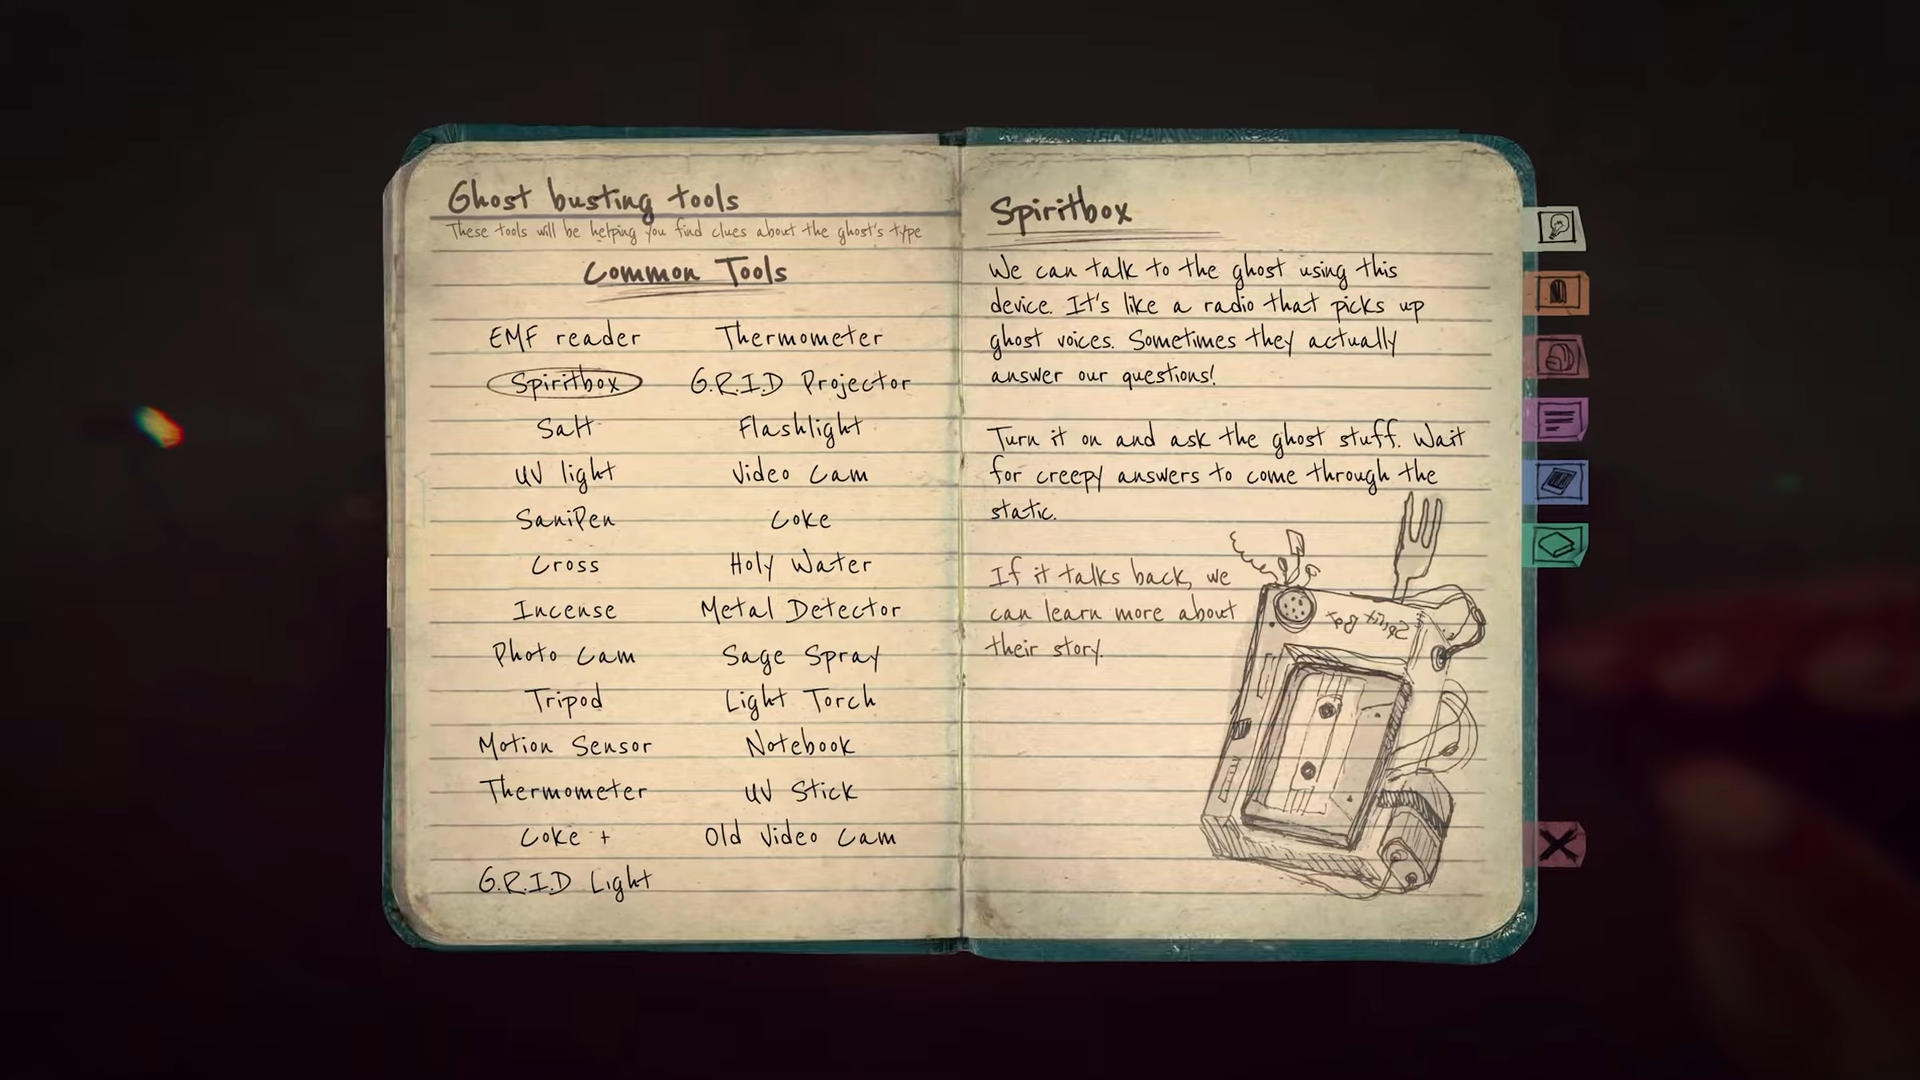 Ghost busting tools
These tools will be helping you find clues about the ghost's type
Common Tools
EMF reader
Thermometer
Spiritbox
G.R.I.D Projector
Salt
Flashlight
UV light
Video Cam
SaniPen
Coke
Cross
Holy Water
Incense
Metal Detector
Photo Cam
Sage Spray
Tripod
Light Torch
Motion Sensor
Notebook
Thermometer
UV Stick
Coke +
Old Video Cam
G.R.I.D Light
Spiritbox
We can talk to the ghost using this
device. It's like a radio that picks up
ghost voices. Sometimes they actually
answer our questions!
Turn it on and ask the ghost stuff. Wait
for creepy answers to come through the
static.
If it talks back, we
can learn more about
their story.